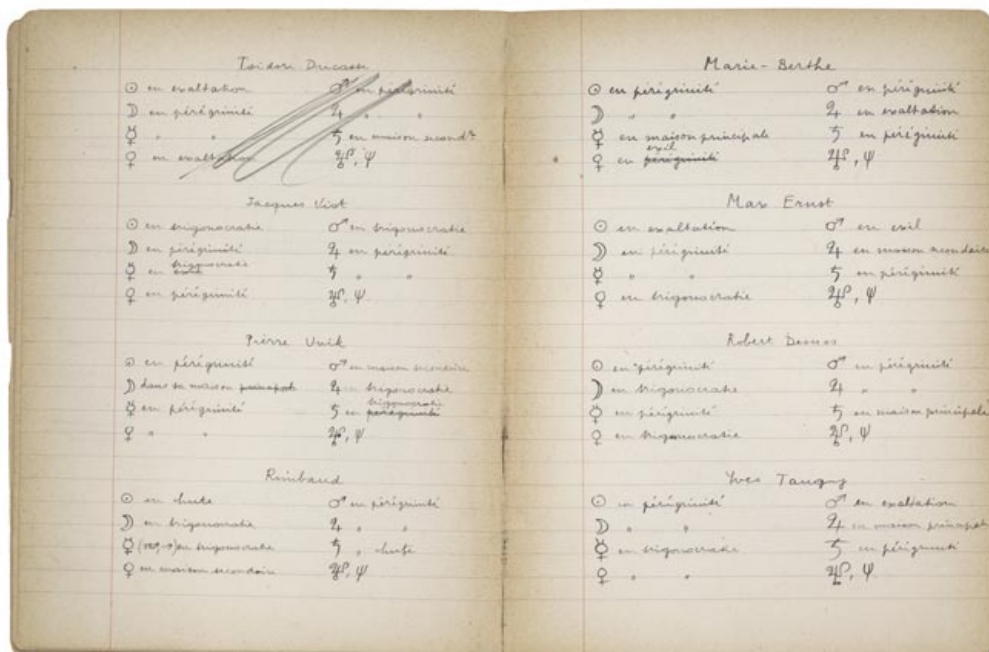 Isidore Ducasse
☉ en exaltation ♂ en pérégrinité
☽ en pérégrinité ♃ " "
☿ " " ♄ en maison secondre
♀ en exaltation ♅, ♆
Jacques Viot
☉ en trigonocratie ♂ en trigonocratie
☽ en pérégrinité ♃ en pérégrinité
trigonocratie
☿ en exil ♄ " "
♀ en pérégrinité ♅, ♆
Pierre Unik
☉ en pérégrinité ♂ en maison secondaire
☽ dans sa maison principale ♃ en trigonocratie
trigonocratie
☿ en pérégrinité ♄ en pérégrinité
♀ " " ♅, ♆
Rimbaud
☉ en chute ♂ en pérégrinité
☽ en trigonocratie ♃ " "
☿ en trigonocratie ♄ " chute
♀ en maison secondaire ♅, ♆
Marie-Berthe
☉ en pérégrinité ♂ en pérégrinité
☽ " " ♃ en exaltation
☿ en maison principale ♄ en pérégrinité
exil
♀ en pérégrinité ♅, ♆
Max Ernst
☉ en exaltation ♂ en exil
☽ en pérégrinité ♃ en maison secondaire
☿ " " ♄ en pérégrinité
♀ en trigonocratie ♅, ♆
Robert Desnos
☉ en pérégrinité ♂ en pérégrinité
☽ en trigonocratie ♃ " "
☿ en pérégrinité ♄ en maison principale
♀ en trigonocratie ♅, ♆
Yves Tanguy
☉ en pérégrinité ♂ en exaltation
☽ " " ♃ en maison principale
☿ en trigonocratie ♄ en pérégrinité
♀ " " ♅, ♆